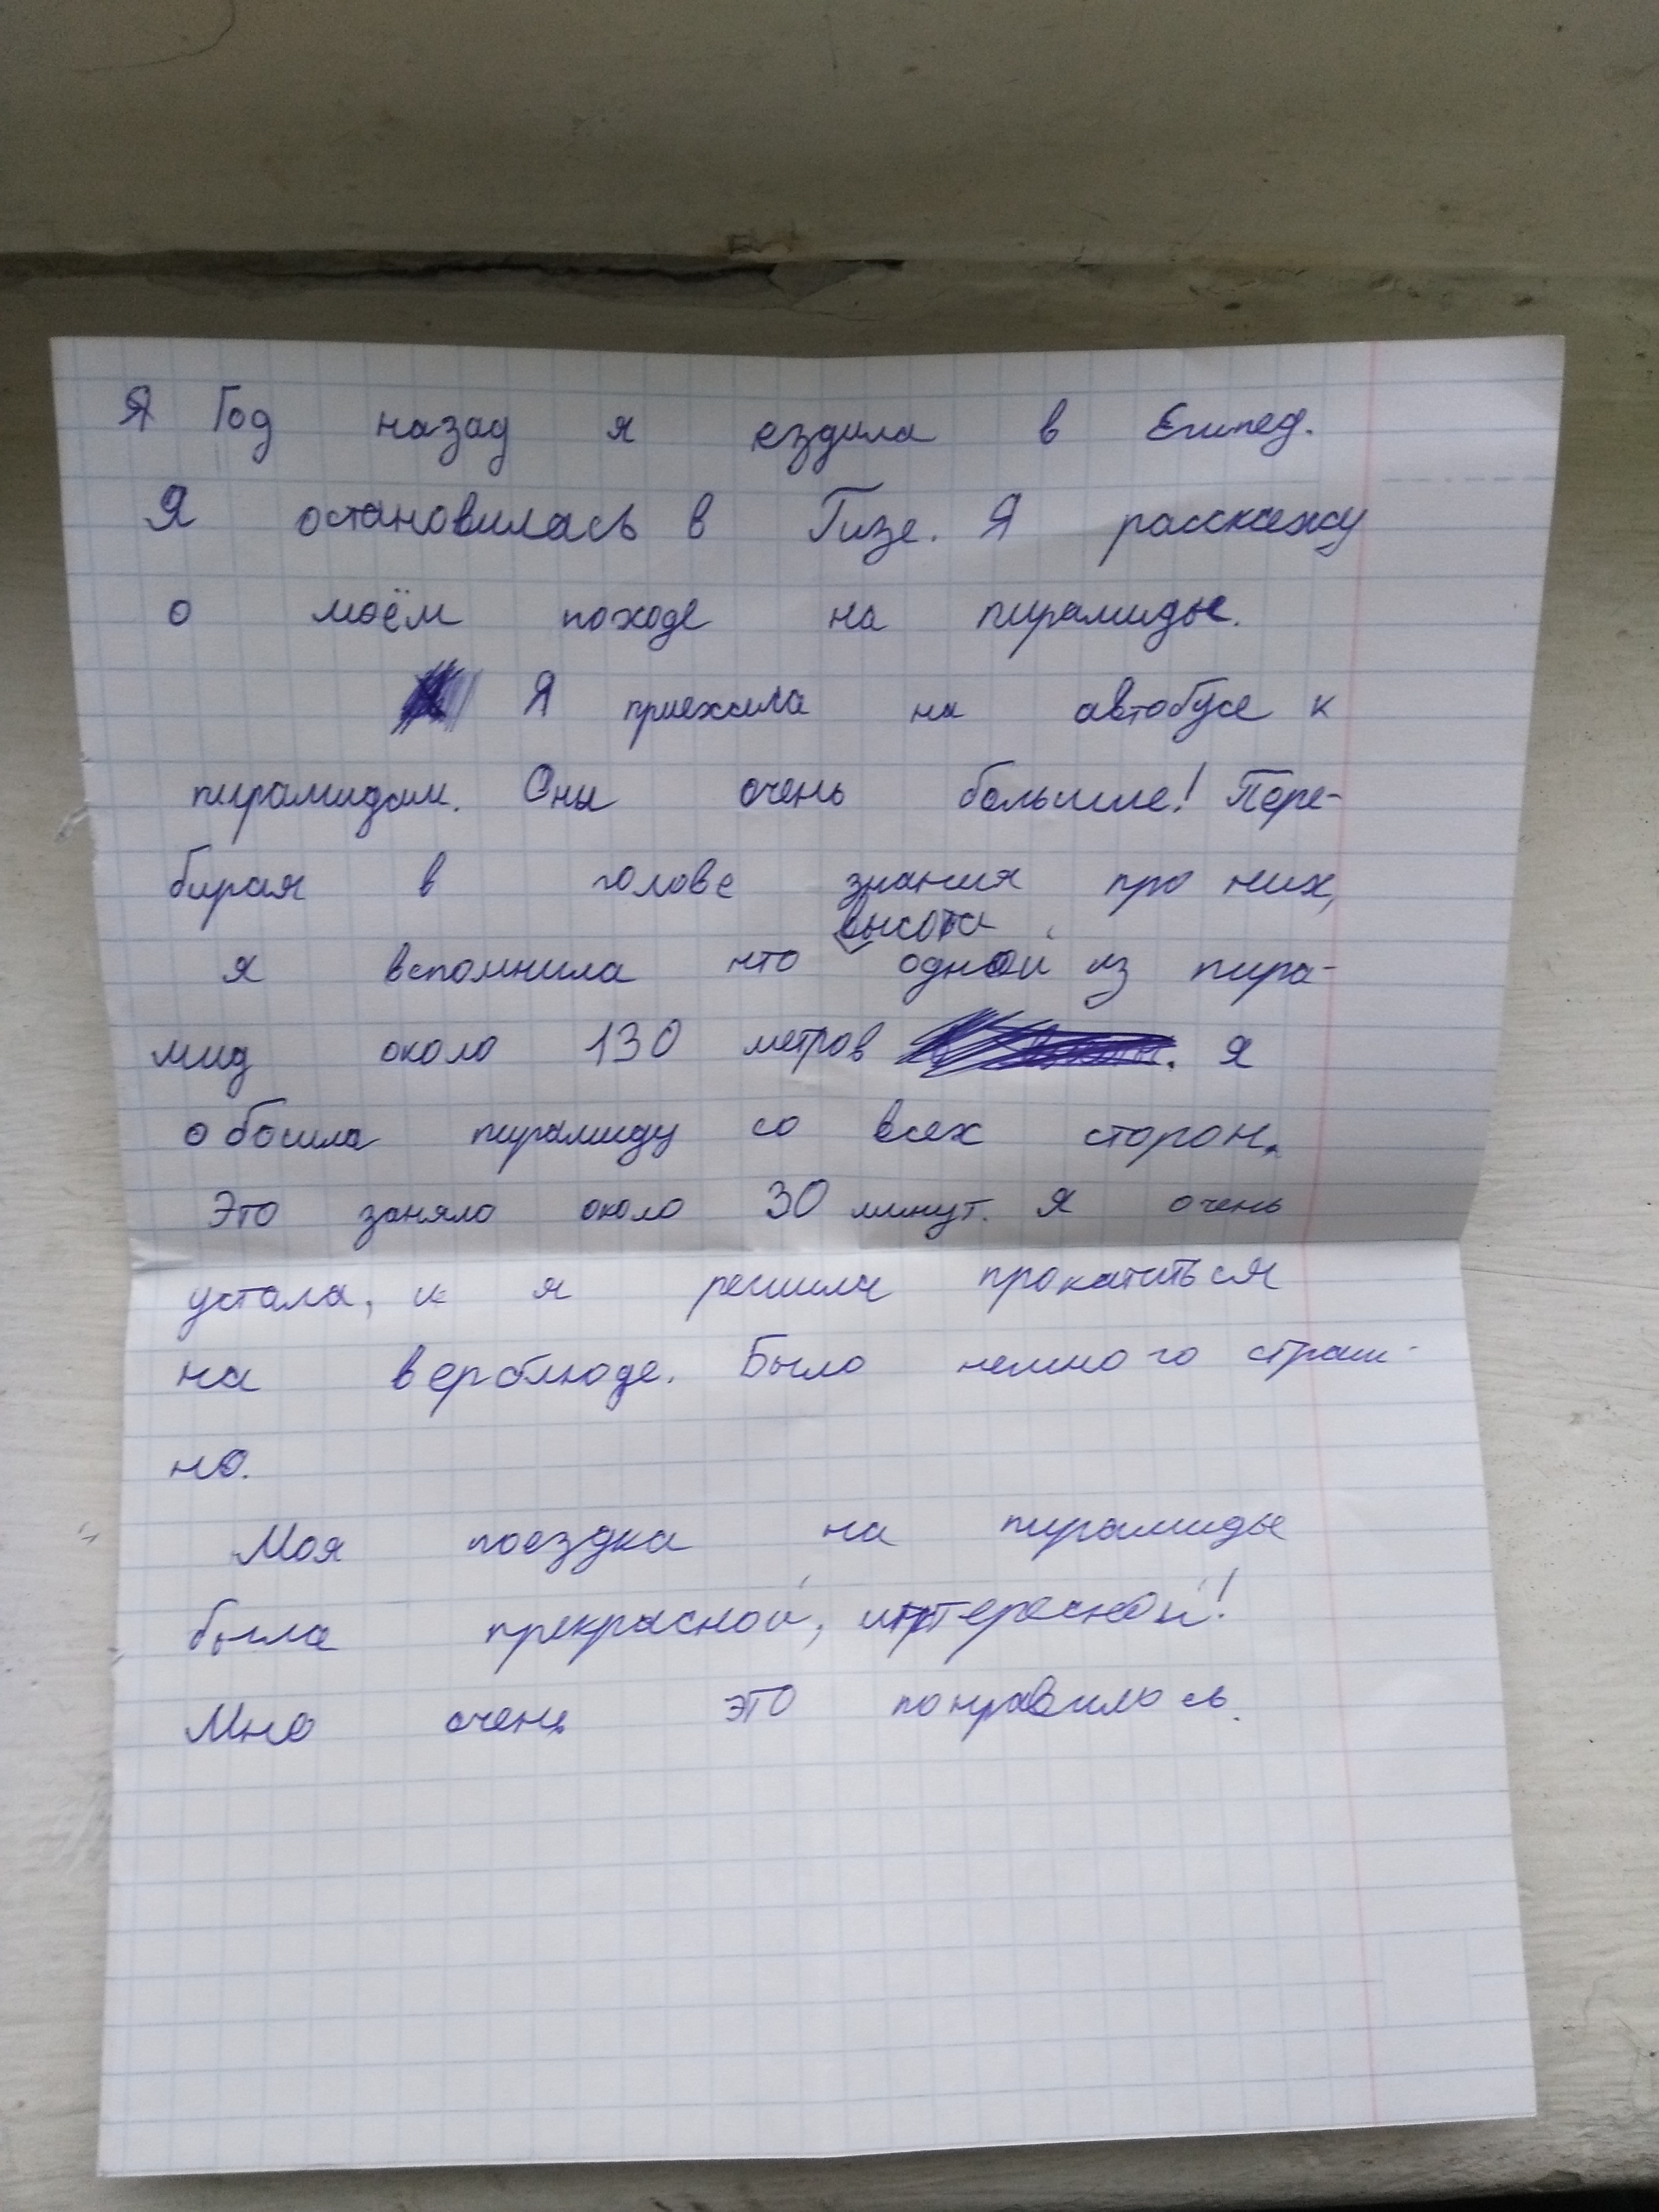 Я Год назад я ездила в Египед.
Я остановилась в Гизе. Я расскажу
о моём походе на пирамиды.
Я приехала на автобусе к
пирамидам. Они очень большие! Пере-
бирая в голове знания про них,
высота
я вспомнила что одной из пира-
мид около 130 метров . Я
обошла пирамиду со всех сторон.
Это заняло около 30 минут. Я очень
устала, и я решила прокатиться
на верблюде. Было немного страш-
но.
Моя поездка на пирамиды
была прекрасной, интересной!
Мне очень это понравилось.